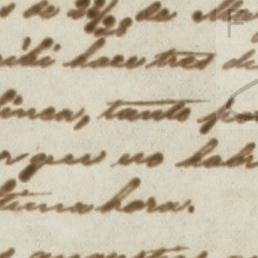 s de 28/28 de Ma
cibi hace tres d
linea, tanto pa
r que no habr
ltima hora.